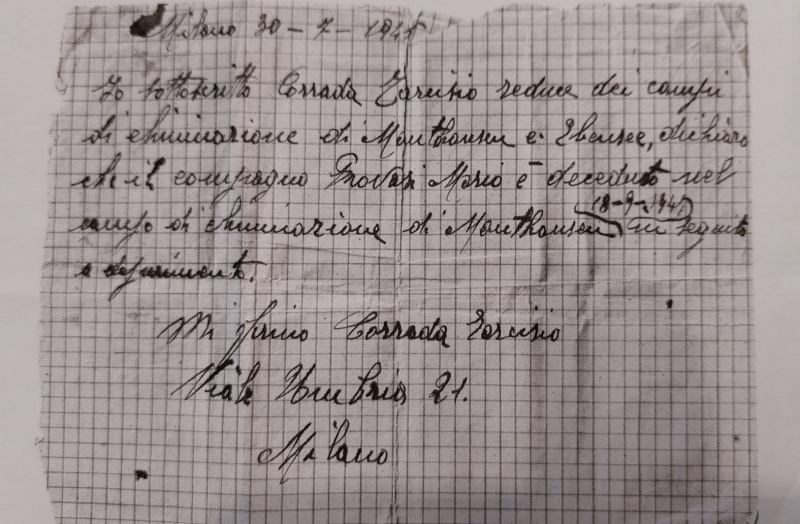 Milano 30-7-1945
Io sottoscritto Corrada Tarcisio reduce dei campi
di eliminazione di Mauthausen e Ebensee, dichiaro
che il compagno Provasi Mario è deceduto nel
18-9-1945
campo di eliminazione di Mauthausen in seguito
a deperimento.
Mi firmo Corrada Tarcisio
Viale Umbria 21.
Milano